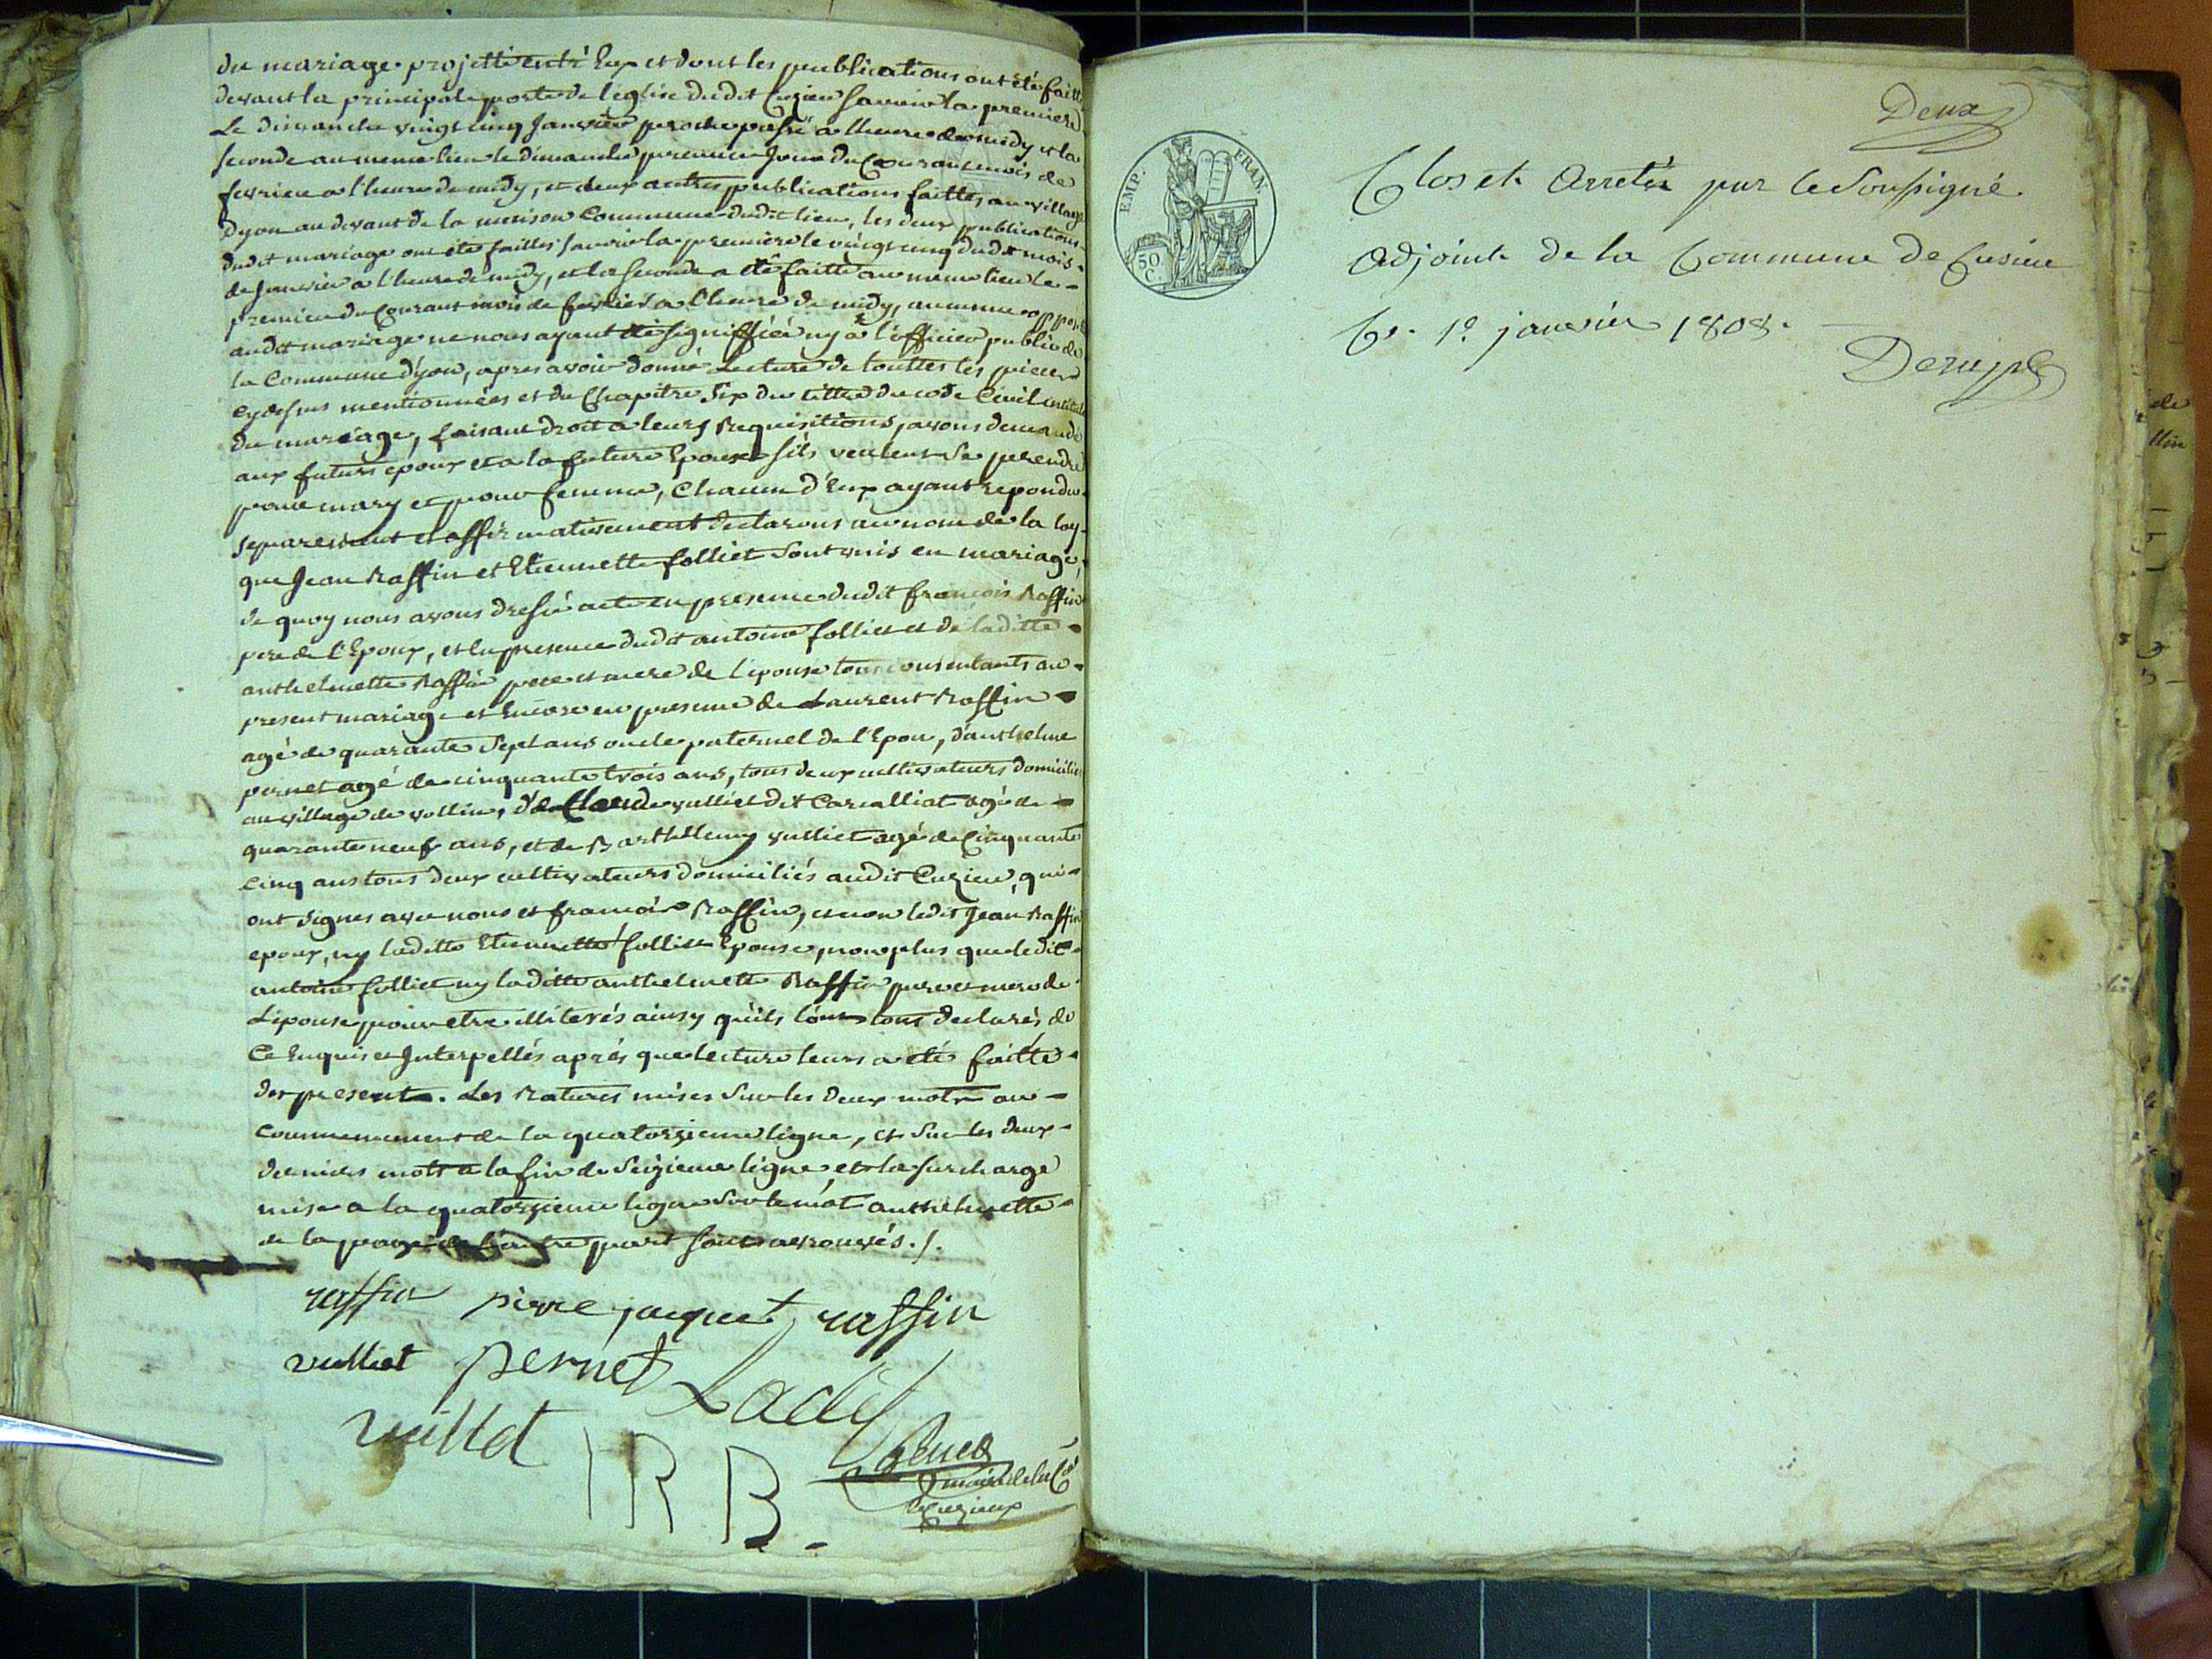 du mariage projetté entré Eux et dont les publications ont été faitte
devant la principale porte de l'église dudit Cuzieu savoir la premiere
Le dimanche vingt cinq Janvier proche passé a lheure de midy et la
seconde au meme lieu le dimanche premier Jour du Courant mois de
fevrier a l'heure de midy, et deux autres publications faittes au village
Dyon au devant de la maison Commune dudit lieu, les deux publications
dudit mariage ont été faittes savoir la premiere le vingt cinq dudit mois
de Janvier a l'heure de midy, et la seconde a été faitte au meme lieu le
premier du Courant mois de fevrier a l'heure de midy, aucune oppos
audit mariage ne nous ayant été signiffiéé ny a l'officier public de
la Commune d'yon, apres avoir donné Lecture de touttes les pieces
cy dessus mentionnées et du Chapitre Six du tittre du code Civil intitulé
du mariage, faisant droit a leurs Requisitions, avons demandé
aux futurs époux et a la future Epouse sils veulent se prendre
pour mary et pour femme, Chacun d'Eux ayant repondu
separement et affirmativement declarons au nom de la loy
que Jean Raffin et Etiennette folliet sont unis en mariage,
de quoy nous avons dressé acte en presence dudit francois Raffin
pere de l'Epoux, et en presence dudit antoine folliet et de laditte
anthelmette Raffin pere et mere de l'épouse tous consentants au
present mariage et Encore en presence de Laurent Raffin
agé de quarante Sept ans oncle paternel de l'Epou, d'anthelme
pernet agé de cinquante trois ans, tous deux cultivateurs domiciliés
au village de vollien, d'de Claude vulliet dit Carcalliat agé de
quarante neuf ans, et de Barthellemy vulliet agé de Cinquante
cinq ans tous deux cultivateurs domiciliés audit Cuzieu, qui
ont signes avec nous et francois Raffin, et non ledit Jean Raffin
epoux, ny laditte Etiennette folliet Epouse, non plus que ledit
antoine folliet ny laditte anthelmette Raffin pere et mere de
L'épouse pour etre illiterés ainsy qu'ils l'ont tous declarés de
Ce Enquis et Interpellés aprés que lecture leurs a été faitte
des presents. Les Ratures mises Sur les deux mots au
commencement de la quatorzieme ligne, et Sur les deux
derniers mots a la fin de Seizieme ligne et la surcharge
mise a la quatorzieme ligne Sur le mot anthelmette
de la page de l'autre part sont approuvés ./.
raffin pierre jaquet raffin
vulliet pernet
vulliet
I R B.
maire de la Cne
de Cuzieux
Deux
EMP. FRAN.
50 C.
Clos et Arretés par le Soussigné
Adjoint de la Commune de Cusieu
Ce 1er janvier 1808.